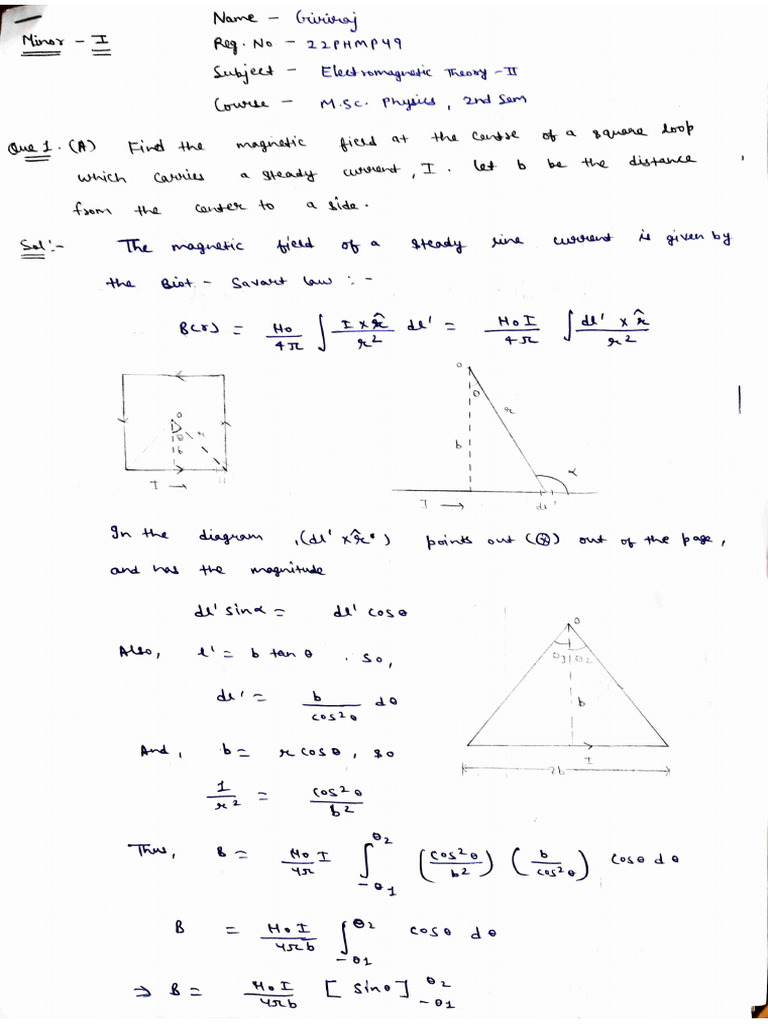 Minor - I
Name - Giriraj
Reg. No - 22PHMP49
Subject - Electromagnetic Theory - II
Course - M.Sc. Physics, 2nd Sem
Que 1. (A) Find the magnetic field at the centre of a square loop
which carries a steady current, I. let b be the distance
from the center to a side.
Sol:- The magnetic field of a steady line current is given by
the Biot - Savart law :-
B(r) = μ0/4π ∫ I × r̂/r² dl' = μ0 I/4π ∫ dl' × r̂/r²
O
θ
b
r
I →
O
θ
r
b
α
I →
dl'
In the diagram, (dl' × r̂) points out (⊗) out of the page,
and has the magnitude
dl' sinα = dl' cosθ
Also, l' = b tan θ . so,
dl' = b/cos²θ dθ
And, b = r cosθ, so
1/r² = cos²θ/b²
O
θ1 θ2
b
I
2b
Thus, B = μ0 I/4π ∫_{-θ1}^{θ2} (cos²θ/b²) (b/cos²θ) cosθ dθ
B = μ0 I/4πb ∫_{-θ1}^{θ2} cosθ dθ
⇒ B = μ0 I/4πb [sinθ]_{-θ1}^{θ2}